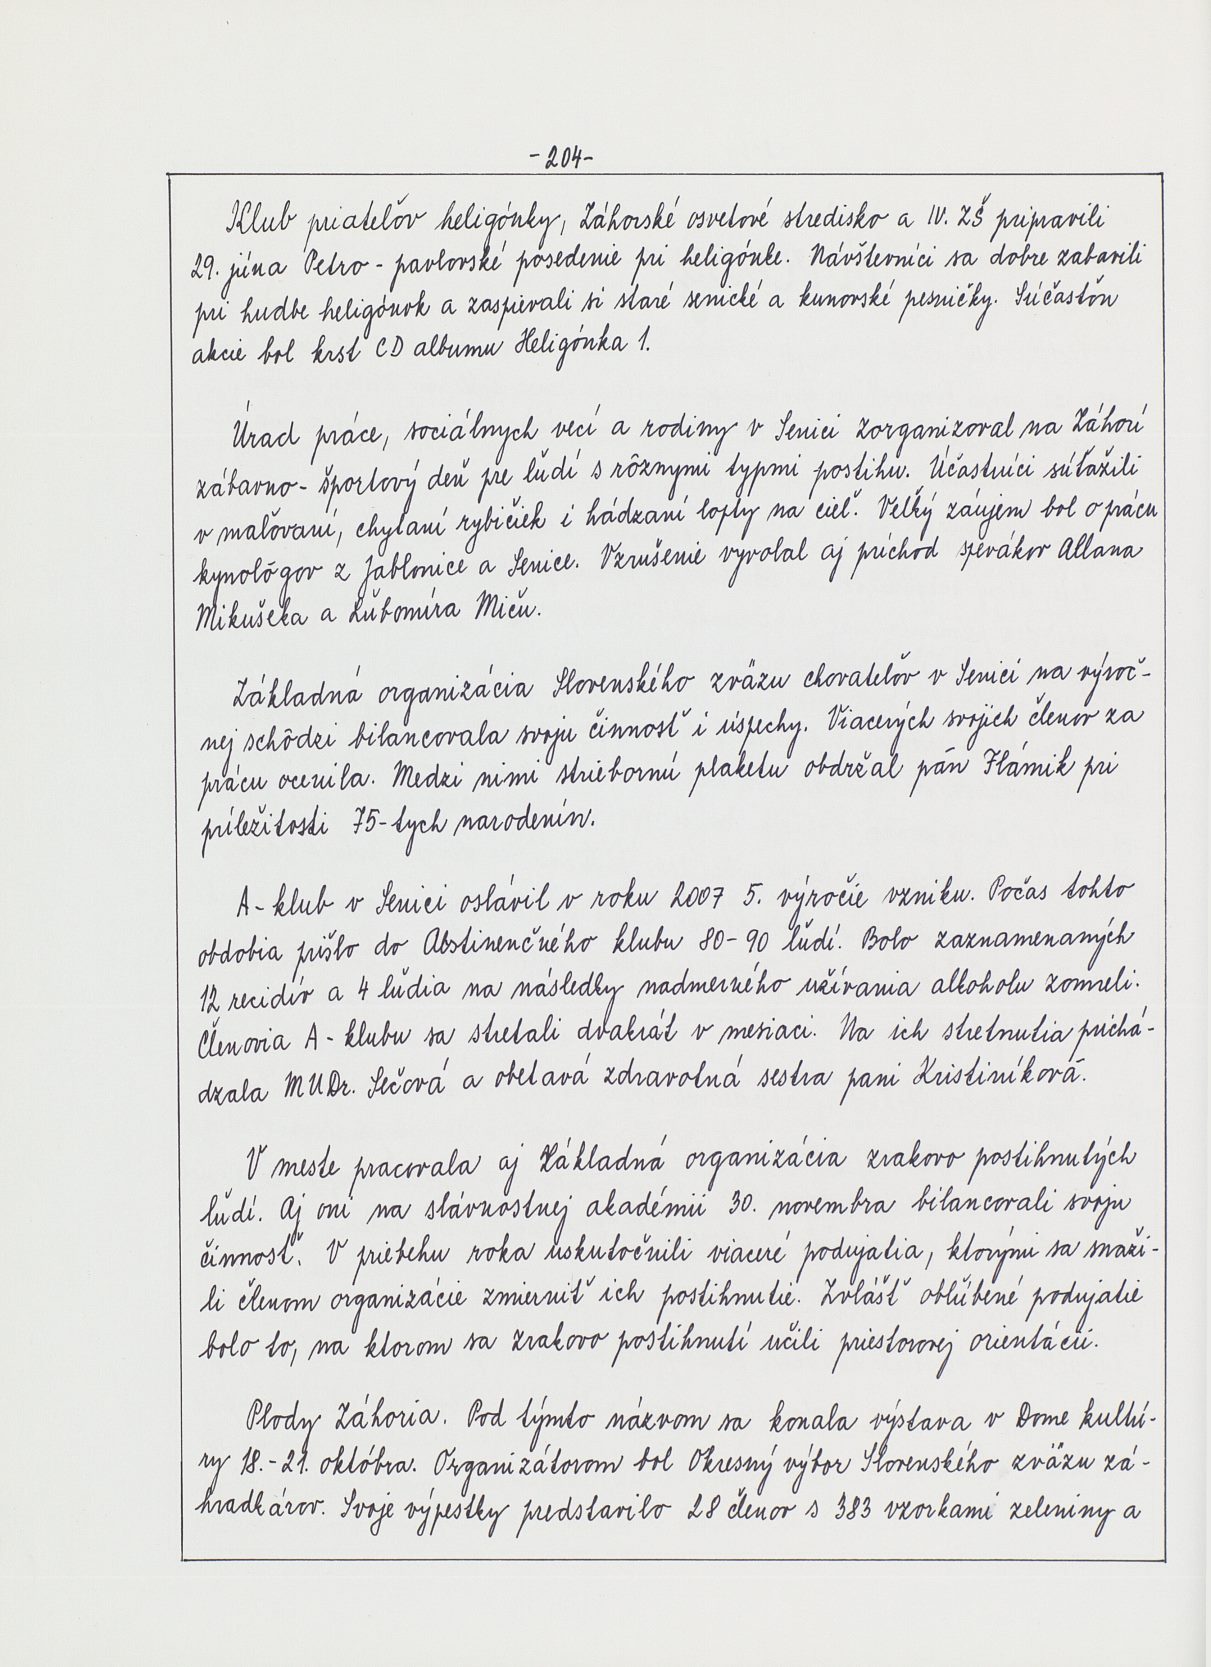 -204-
Klub priateľov heligónky, Záhorské osvetové stredisko a IV. ZŠ pripravili
29. júna Petro - pavlovské posedenie pri heligónke. Návštevníci sa dobre zabavili
pri hudbe heligónok a zaspievali si staré senické a kunovské pesničky. Súčasťou
akcie bol krst CD albumu Heligónka 1.
Úrad práce, sociálnych vecí a rodiny v Senici zorganizoval na Záhorí
zábavno - športový deň pre ľudí s rôznymi typmi postihu. Účastníci súťažili
v maľovaní, chytaní rybičiek i hádzaní lopty na cieľ. Veľký záujem bol o prácu
kynológov z Jablonice a Senice. Vzrušenie vyvolal aj príchod spevákov Allana
Mikušeka a Ľubomíra Miču.
Základná organizácia Slovenského zväzu chovateľov v Senici na výroč-
nej schôdzi bilancovala svoju činnosť i úspechy. Viacerých svojich členov za
prácu ocenila. Medzi nimi striebornú plaketu obdržal pán Flámik pri
príležitosti 75-tych narodenín.
A - klub v Senici oslávil v roku 2007 5. výročie vzniku. Počas tohto
obdobia prišlo do Abstinenčného klubu 80 - 90 ľudí. Bolo zaznamenaných
12 recidív a 4 ľudia na následky nadmerného užívania alkoholu zomreli.
Členovia A - klubu sa stretali dvakrát v mesiaci. Na ich stretnutia prichá-
dzala MUDr. Sečová a obetavá zdravotná sestra pani Kristiníková.
V meste pracovala aj Základná organizácia zrakovo postihnutých
ľudí. Aj oni na slávnostnej akadémii 30. novembra bilancovali svoju
činnosť. V priebehu roka uskutočnili viaceré podujatia, ktorými sa snaži-
li členom organizácie zmierniť ich postihnutie. Zvlášť obľúbené podujatie
bolo to, na ktorom sa zrakovo postihnutí učili priestorovej orientácii.
Plody Záhoria. Pod týmto názvom sa konala výstava v Dome kultú-
ry 18. - 21. októbra. Organizátorom bol Okresný výbor Slovenského zväzu zá-
hradkárov. Svoje výpestky predstavilo 28 členov s 383 vzorkami zeleniny a